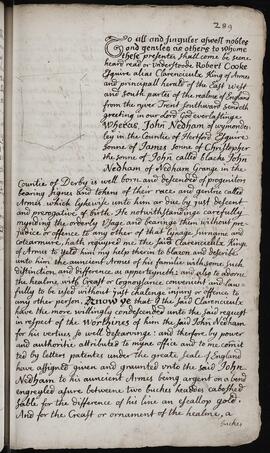 289
To all and singuler aswell nobles
and gentles as others to whome
these presentes shall come, be seene
heard read or understoode Robert Cooke
Esquire alias Clarencieulx King of Armes
and principall herald of the East west
and south partes of the realme of England
from the river Trent southward sendeth
greeting in our Lord God everlastinge
Whereas, John Nedham of wymond
ley in the Countie of Hertford Esquire
sonne of James sonne of Christopher
the sonne of John called blacke John
Nedham of Nedham Grange in the
Countie of Derby is well born and descended of progenitors
bearing signes and tokens of their race and gentrie called
Armes which lykewise unto him ar due by just descent
and prerogative of birth. He notwithstandinge carefully
mynding the orderly usage and bearinge them without pre-
judice or offence to any other of that lynage surname and
cotearmure, hath required me the said Clarencieulx Kinge
of Armes to yeld him my helpe therin to blazon and describe
unto him the auncient Armes of his familie with some such
distinction and difference as apperteyneth: and also to adorne
the healme with Creast or Cognoysance convenient and law-
fully to be used without just chalenge injury or offence to
any other person. Know ye that I the said Clarencieulx
have the more willingly condescended unto the said request
in respect of the worthines of him the said John Nedham
for his vertues so well deserving: and therfore by power
and authoritie attributed to myne office and to me comit
ted by letters patentes under the greate seale of England
have assigned given and graunted unto the said John
Nedham to his auncient Armes being argent on a bend
engreyled asure betweene two buckes heades cabeshed
sable for the difference of his line an escallop gold:
And for the Creast or ornament of the healme, a
buckes